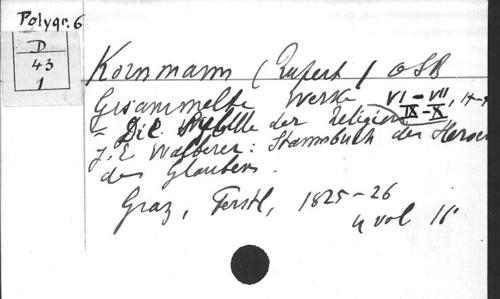 Polygr. 6
D
43
1
Kornmann (Rupert) OSB
Gesammelte Werke VI-VII,
IX-X
= Die Sybille der Religion
J. E. Walberer: Stammbuch der
des Glaubens.
Graz, Ferstl, 1825-26
4 vol 16°